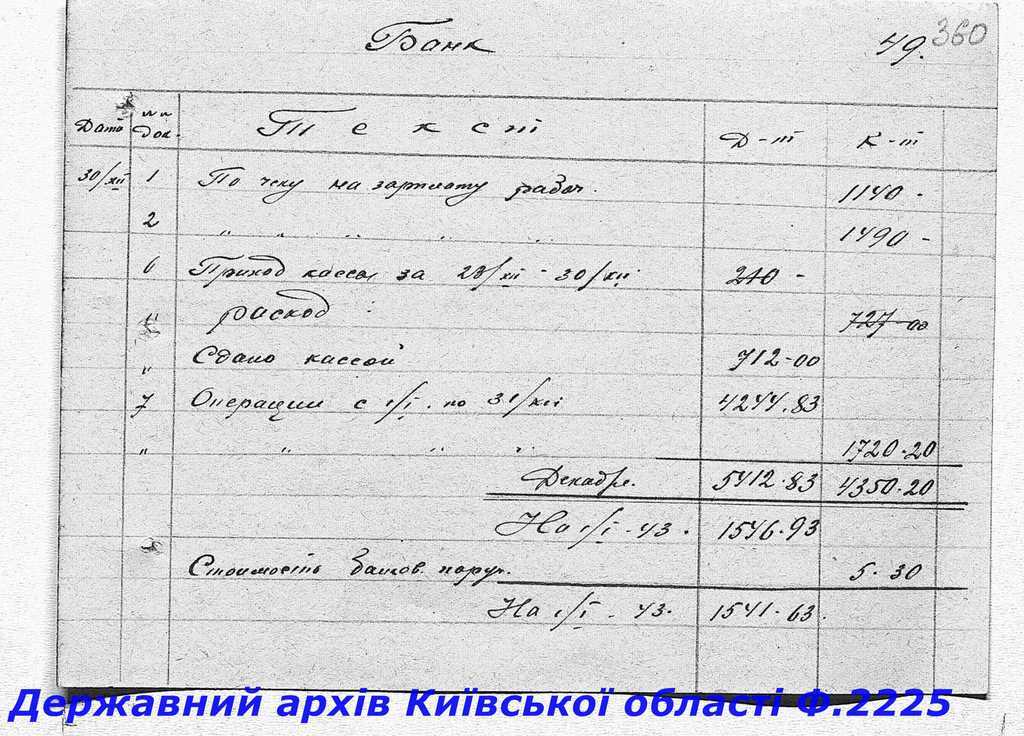 Банк
49. 360
Дата №№ док. Текст Д-т К-т
30/XII 1 По чеку на зарплату рабоч. 1140 -
2 " " " " " 1490 -
6 Приход кассы за 23/XII - 30/XII 210 -
" расход : 727-00
" Сдано кассой 712-00
7 Операции с 1/I. по 31/XII 4244.83
" " " " 1720.20
Декабрь. 5412.83 4350.20
На 1/I - 43. 1546.93
Стоимость поруч. 5.30
На 1/I - 43. 1541.63.
Державний архів Київської області Ф.2225